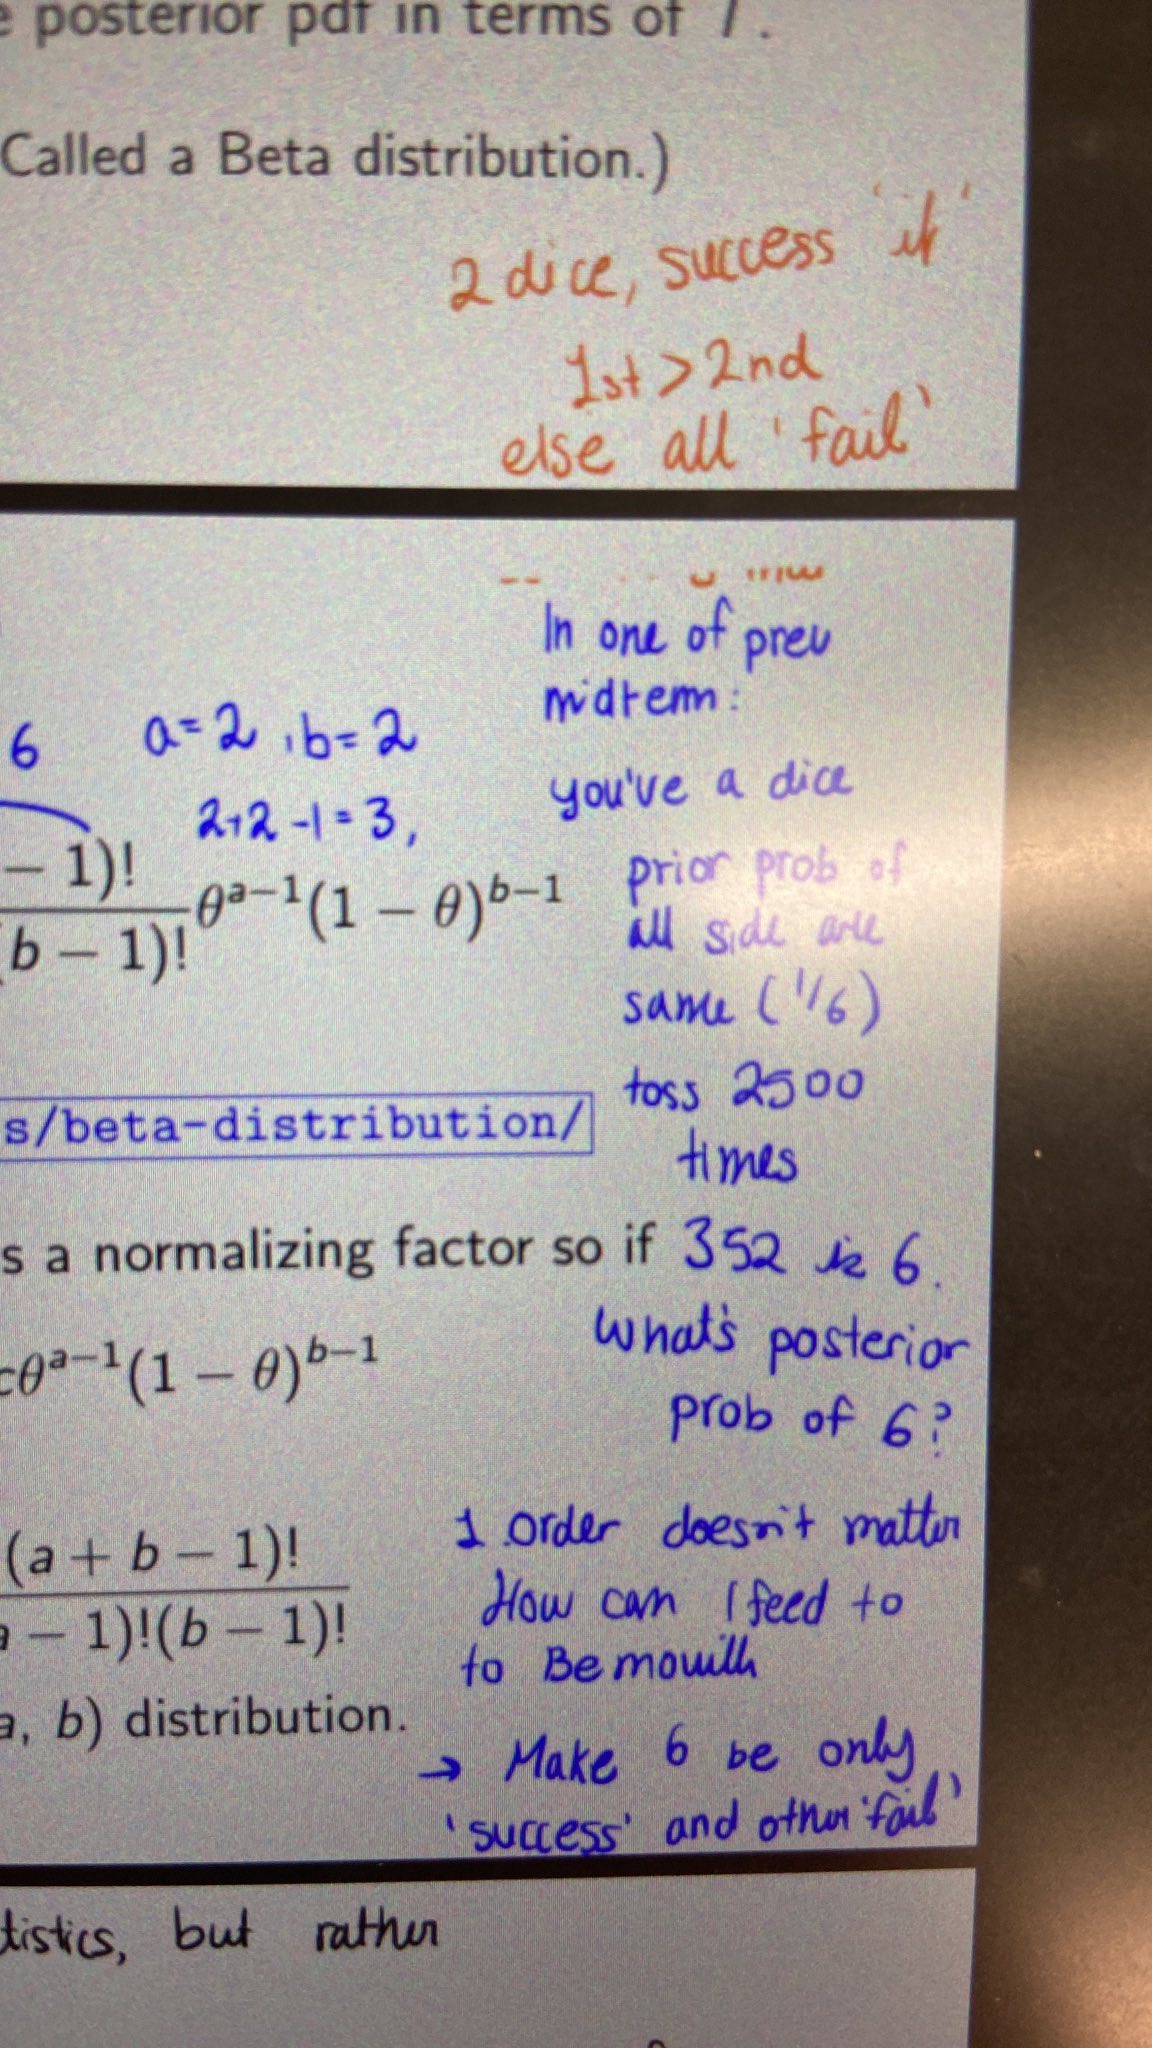 posterior pdf in terms of T.
Called a Beta distribution.)
2 dice, success 'if'
1st > 2nd
else all 'fail'
In one of prev
midterm:
6 a=2, b=2
you've a dice
2+2-1=3,
prior prob of
all side are
same (1/6)
− 1)!
b − 1)! θ^{a−1}(1 − θ)^{b−1}
toss 2500
times
s/beta-distribution/
s a normalizing factor so if 352 is 6.
What's posterior
prob of 6?
cθ^{a−1}(1 − θ)^{b−1}
1. Order doesn't matter
How can I feed to
to Bernouilli
(a + b − 1)!
− 1)!(b − 1)!
a, b) distribution.
→ Make 6 be only
'success' and other 'fail'
tistics, but rather